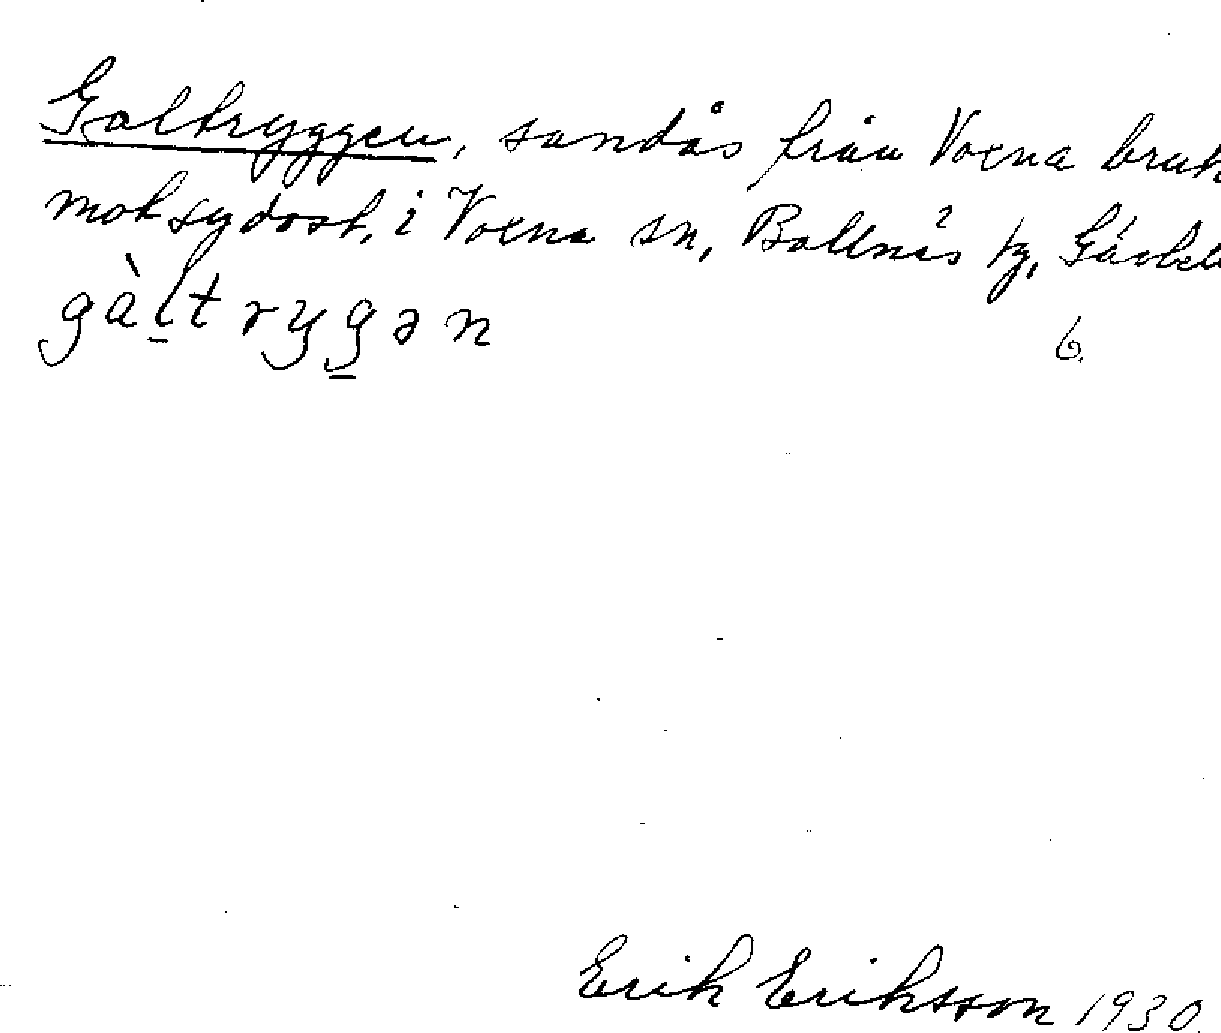 Galtryggen, sandås från Voxna bruk
mot sydost, i Voxna sn, Bollnäs tg, Gävleb
gàl̠t ryg̠ən
6.
Erik Eriksson 1930.